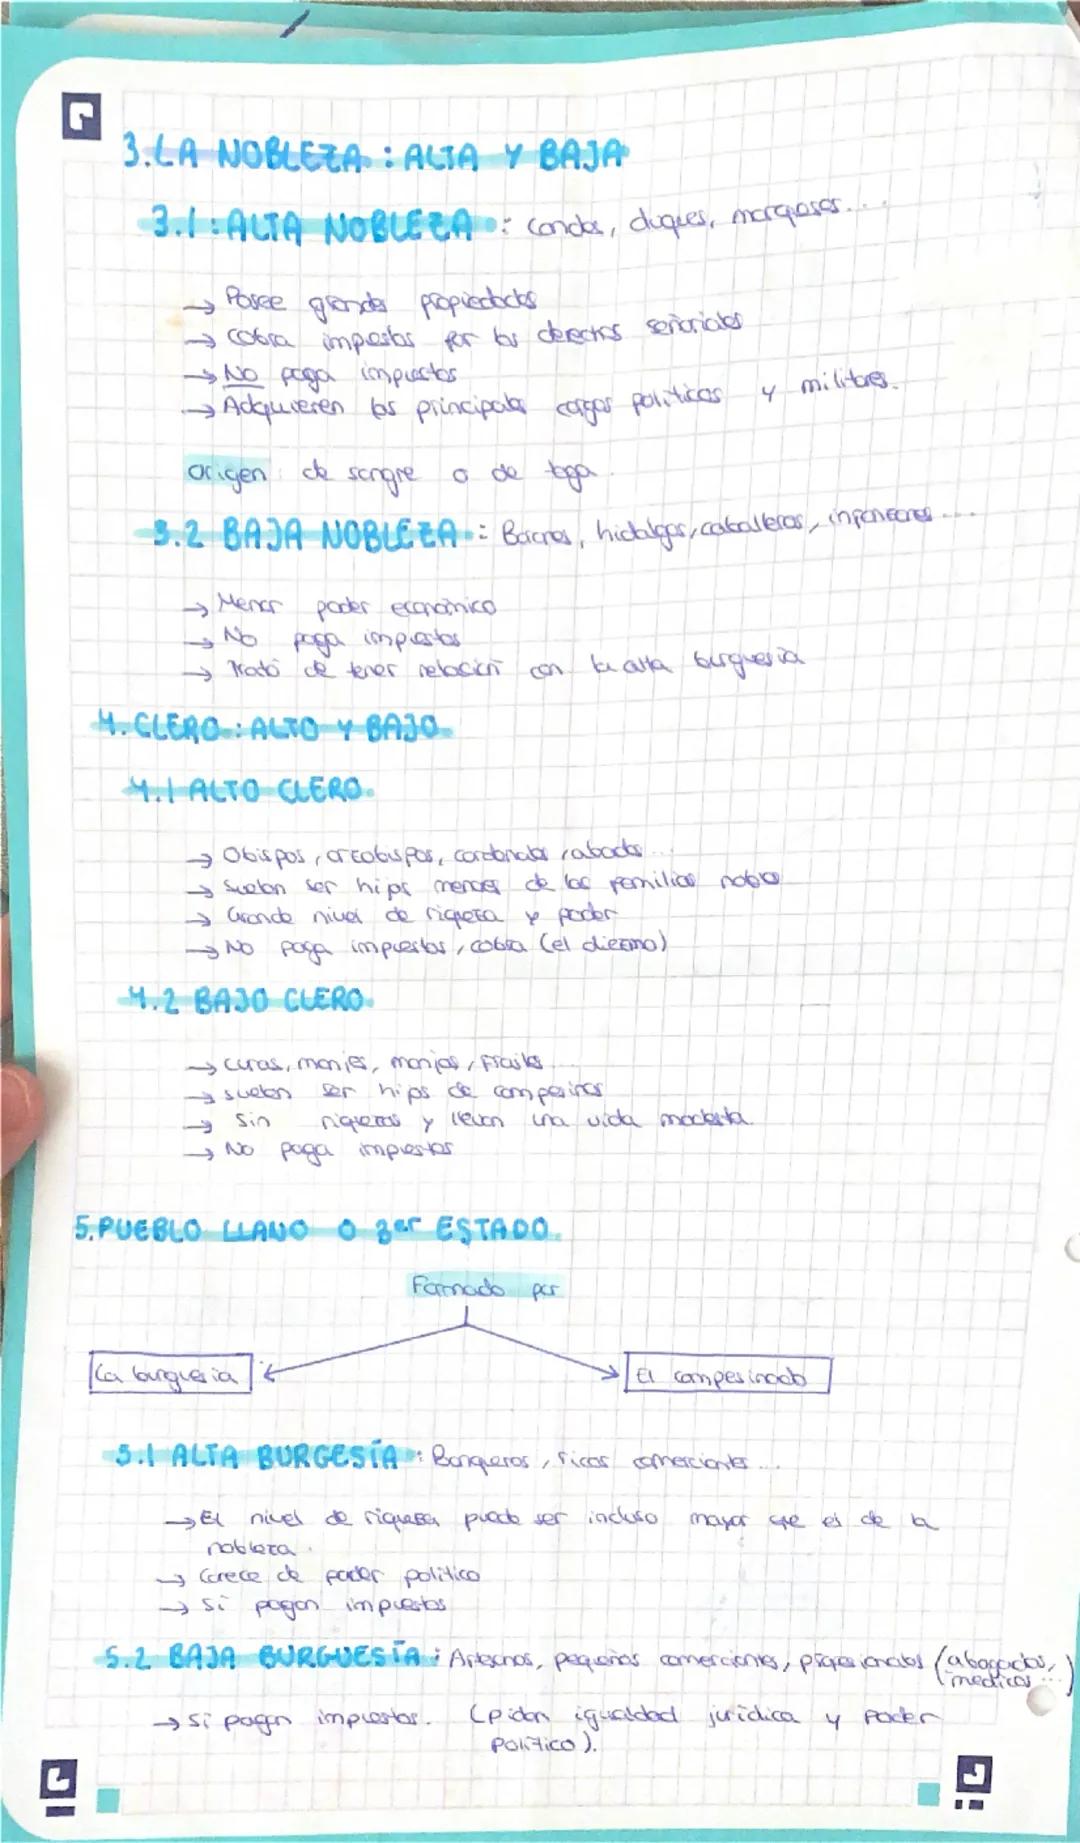 3. LA NOBLEZA : ALTA Y BAJA
3.1 : ALTA NOBLEZA : condes, duques, marqueses...
→ Posee grandes propiedades
→ cobra impuestos por los derechos señoriales
→ No paga impuestos
→ Adquieren los principales cargos políticos y militares.
origen : de sangre o de toga.
3.2 BAJA NOBLEZA : Barones, hidalgos, caballeros, infanzones...
→ Menor poder económico
→ No paga impuestos
→ Trató de tener relación con la alta burguesia
4. CLERO : ALTO Y BAJO
4.1 ALTO CLERO.
→ Obispos, arzobispos, cardenales, abades...
→ suelen ser hijos menores de las familias nobles
→ Grande nivel de riqueza y poder
→ No paga impuestos, cobra (el diezmo)
4.2 BAJO CLERO.
→ curas, monjes, monjas, frailes...
→ suelen ser hijos de campesinos
→ Sin riquezas y llevan una vida modesta.
→ No paga impuestos
5. PUEBLO LLANO O 3er ESTADO.
Formado por
La burguesia
El campesinado
5.1 ALTA BURGESÍA : Banqueros, ricos comerciantes...
→ El nivel de riqueza puede ser incluso mayor que el de la
nobleza.
→ Carece de poder político
→ Sí pagan impuestos
5.2 BAJA BURGUESÍA : Artesanos, pequeños comerciantes, profesionales (abogados,
médicos...)
→ Sí pagan impuestos. (piden igualdad jurídica y poder
político).